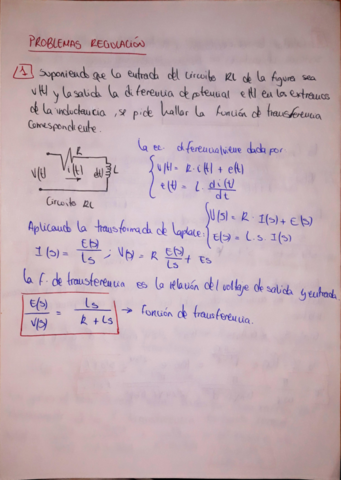 PROBLEMAS REGULACIÓN
1 Suponiendo que la entrada del circuito RL de la figura sea
v(t) y la salida la diferencia de potencial e(t) en los extremos
de la inductancia, se pide hallar la función de transferencia
correspondiente.
La ec. diferencial viene dada por
R
V(t) i(t) dV L
Circuito RL
V(t) = R · i(t) + e(t)
e(t) = L · di(t)/dt
Aplicando la transformada de Laplace:
V(s) = R · I(s) + E(s)
E(s) = L·s·I(s)
I(s) = E(s)/Ls ; V(s) = R E(s)/Ls + Es
La f. de transferencia es la relación del voltaje de salida y entrada
E(s)/V(s) = Ls/R + Ls → Función de transferencia.